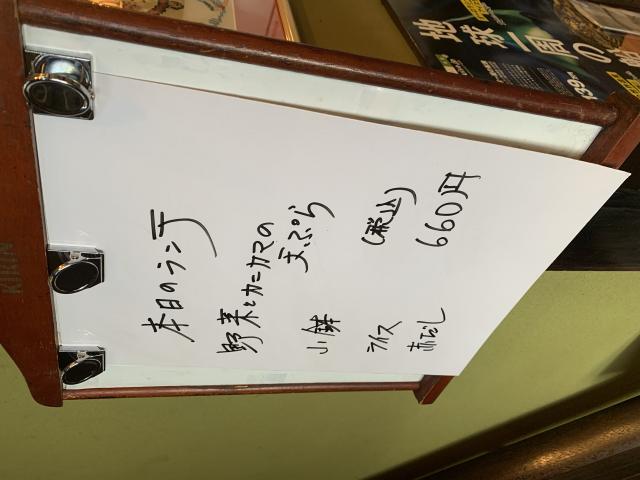 本日のランチ
野菜とカニカマの
天ぷら
小鉢
ライス
赤だし
(税込)
660円
KIRIN
地球一周の船